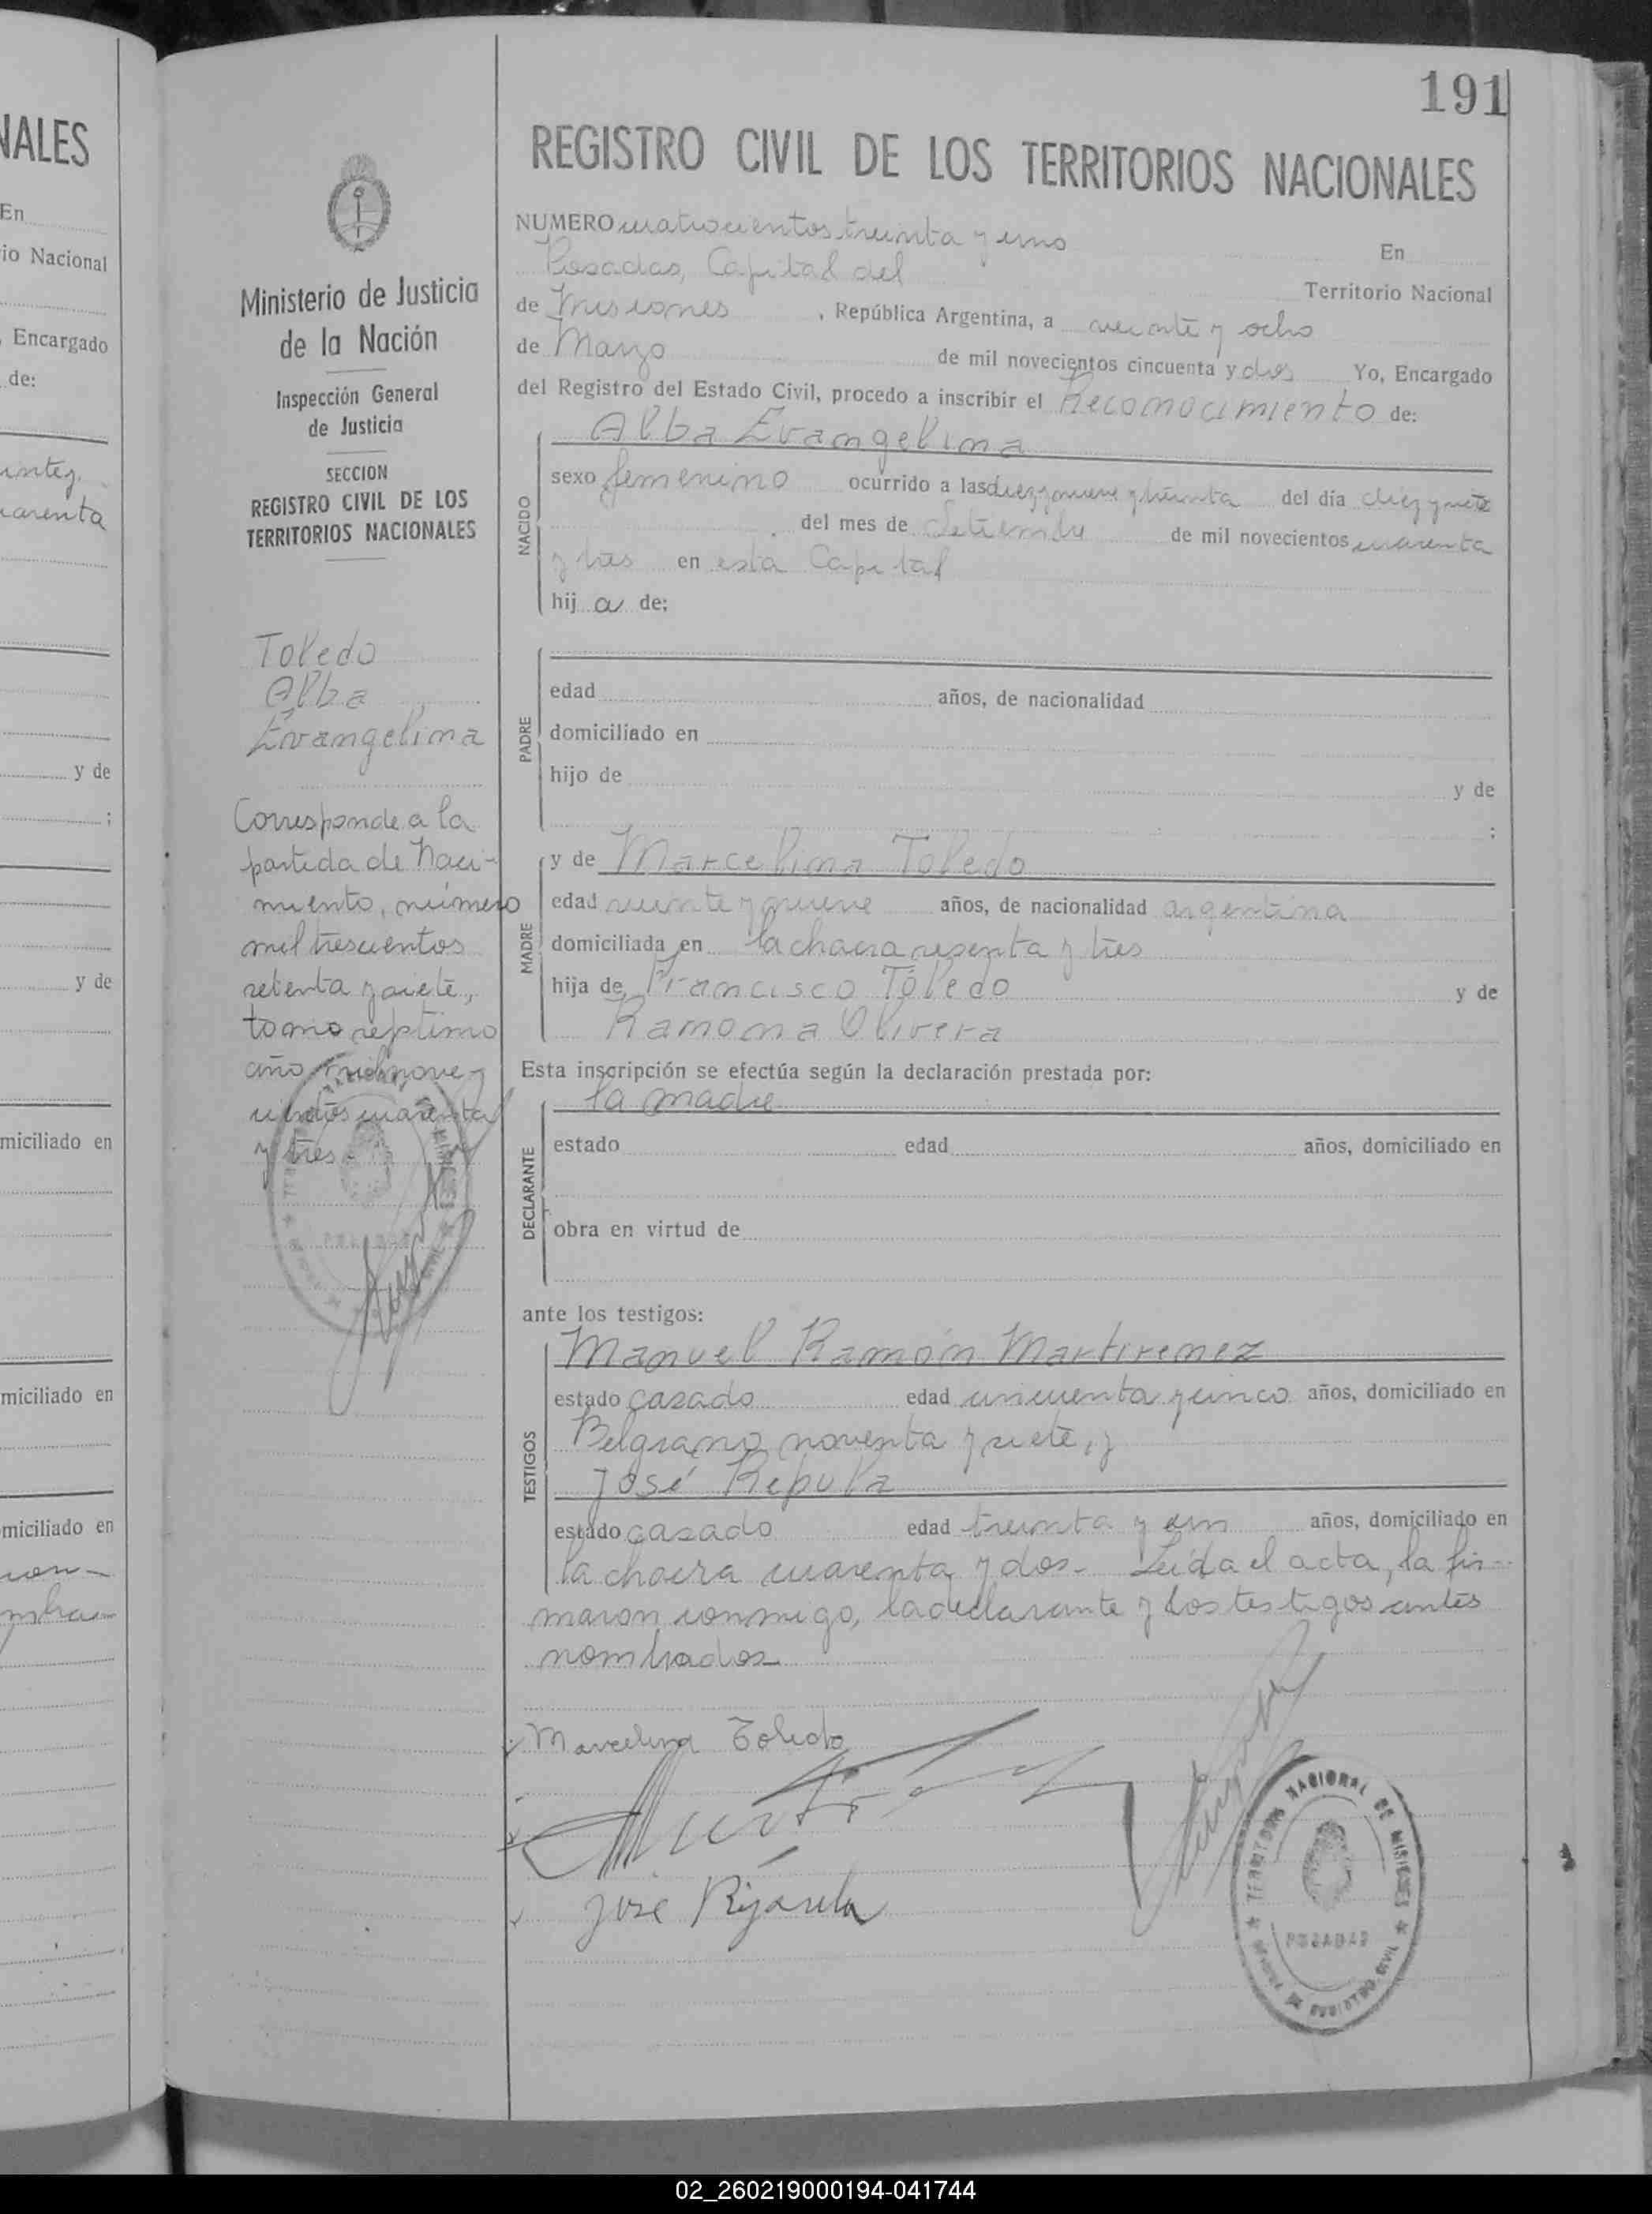 NALES
En
io Nacional
Encargado
de:
arenta
y de
;
y de
miciliado en
miciliado en
miciliado en
191
Ministerio de Justicia
de la Nación
Inspección General
de Justicia
SECCION
REGISTRO CIVIL DE LOS
TERRITORIOS NACIONALES
Toledo
Alba
Evangelina
Corresponde a la
partida de Naci-
miento, número
mil trescientos
setenta y siete,
tomo septimo
año mil nove-
cientos cuarenta
y tres.
REGISTRO CIVIL DE LOS TERRITORIOS NACIONALES
NUMERO cuatrocientos treinta y uno En
Posadas, Capital del Territorio Nacional
de Misiones, República Argentina, a veinte y ocho
de Marzo de mil novecientos cincuenta y dos Yo, Encargado
del Registro del Estado Civil, procedo a inscribir el Reconocimiento de:
NACIDO
Alba Evangelina
sexo femenino ocurrido a las diez y nueve y treinta del día diez y siete
del mes de Setiembre de mil novecientos cuarenta
y tres en esta Capital
hij a de:
PADRE
edad años, de nacionalidad
domiciliado en
hijo de y de
;
MADRE
y de Marcelina Toledo
edad veinte y nueve años, de nacionalidad argentina
domiciliada en la chacra sesenta y tres
hija de Francisco Toledo y de
Ramona Olivera
Esta inscripción se efectúa según la declaración prestada por:
DECLARANTE
la madre
estado edad años, domiciliado en
obra en virtud de
ante los testigos:
TESTIGOS
Manuel Ramón Martirenez
estado casado edad cincuenta y cinco años, domiciliado en
Belgrano noventa y siete, y
José Repula
estado casado edad treinta y un años, domiciliado en
la chacra cuarenta y dos.- Leída el acta, la fir-
maron conmigo, la declarante y los testigos antes
nombrados
Marcelina Toledo
José
TERRITORIO NACIONAL DE MISIONES
POSADAS
02_260219000194-041744